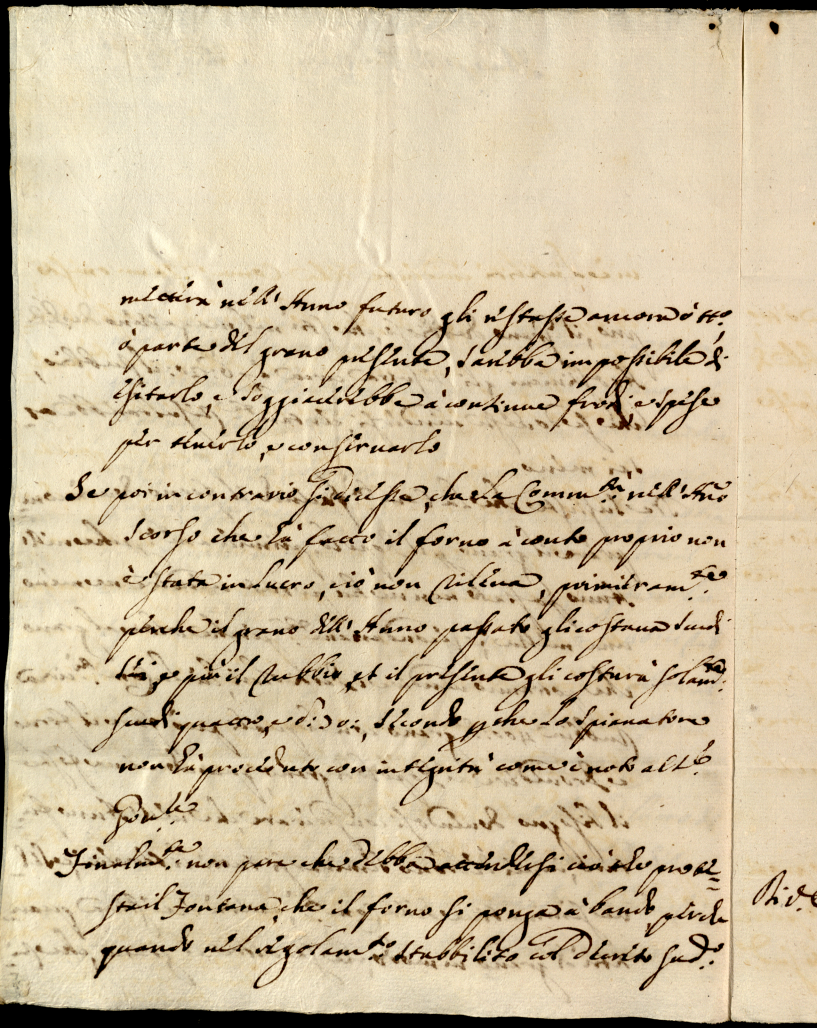 metterà nell'Anno futuro gli restasse ancora ò tt.o
ò parte del grano presente, sarebbe impossibile di
esitarlo, e soggiacerebbe à continue frodi e spese
per tenerlo, e conservarlo
Se poi in contrario si dicesse, che La Comm.tà nell'Año
scorso che hà facto il forno à conto proprio non
è stata in Lucro, ciò non rileva, primieram.te
perche il grano dell'Anno passato gli costava scudi
sei, e più il rubbio, et il presente gli costarà solam.te
scudi quattro, e d: 20:, secondo perche Lo Spianatore
non hà proceduto con integrità come è noto al L.
Finalm.te non pare che debba attendersi ciò che prote=
sta il Fontana, che il forno si ponga à bando, perche
quando nel regolam.to stabbilito col Decreto sud.o
Rid.